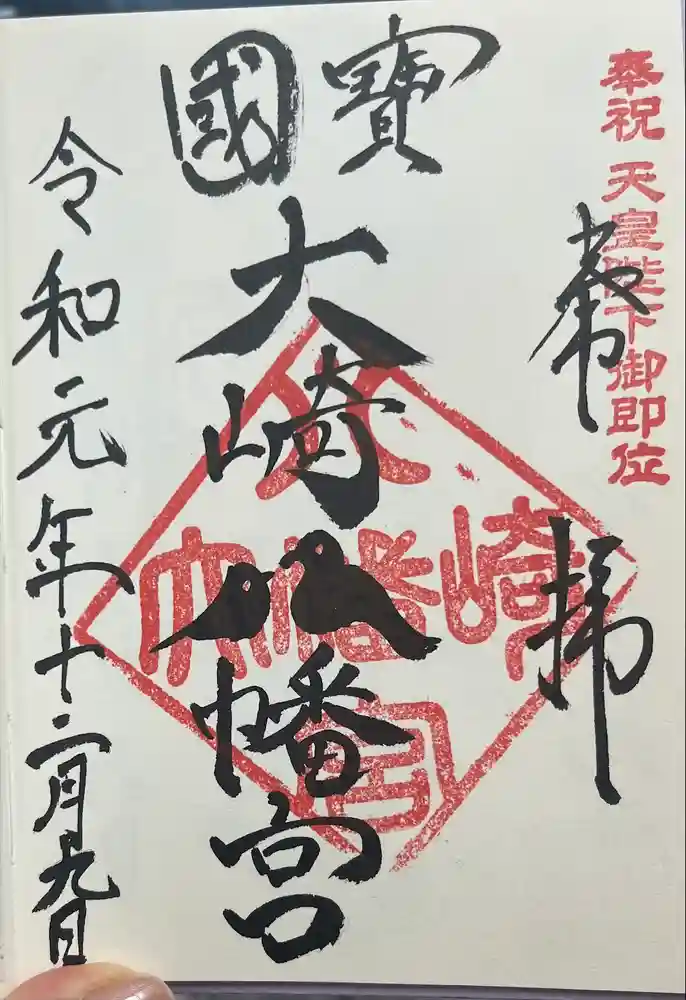 奉祝 天皇陛下御即位
奉拝
寶國
大崎八幡宮
大崎八幡宮
令和元年十二月九日